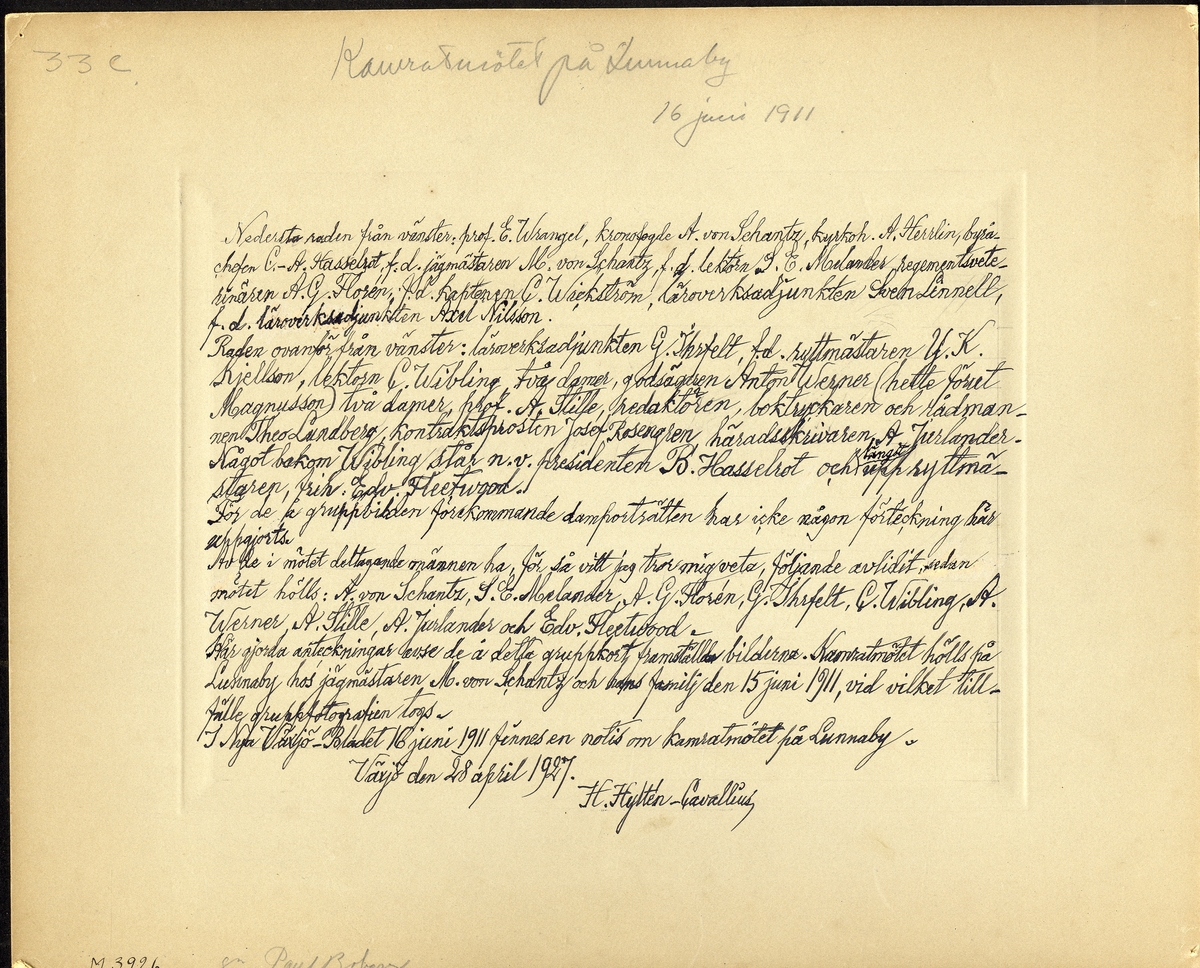 33 c
Kamratmötet på Lunnaby
16 juni 1911
Nedersta raden från vänster: prof. E. Wrangel, kronofogde A. von Schantz, kyrkoh. A. Herrlin, byrå-
chefen C.-A. Hasselrot, f.d. jägmästaren M. von Schantz, f.d. lektorn S. E. Melander, regementsvete-
rinären A. G. Florén, f.d. kaptenen C. Wickström, läroverksadjunkten Sven Linnell,
f.d. läroverksadjunkten Axel Nilsson.
Raden ovanför från vänster: läroverksadjunkten G. Ihrfelt, f.d. ryttmästaren Y. K.
Kjellson, lektorn C. Wibling, två damer, godsägaren Anton Werner (hette förut
Magnusson) två damer, prof. A. Stille, redaktören, boktryckaren och rådman-
nen Theo Lundberg, kontraktsprosten Josef Rosengren, häradsskrivaren A. Jurlander.
Något bakom Wibling står n.v. presidenten B. Hasselrot och längst upp ryttmä-
staren, frih. Edv. Fleetwood.
För de å gruppbilden förekommande damporträtten har icke någon förteckning här
uppgjorts.
Av de i mötet deltagande männen ha, för så vitt jag tror mig veta, följande avlidit, sedan
mötet hölls: A. von Schantz, S. E. Melander, A. G. Florén, G. Ihrfelt, C. Wibling, A.
Werner, A. Stille, A. Jurlander och Edv. Fleetwood.
Här gjorda anteckningar avse de å detta gruppkort framställda bilderna. Kamratmötet hölls på
Lunnaby hos jägmästaren M. von Schantz och hans familj den 15 juni 1911, vid vilket till-
fälle gruppfotografien togs.
I Nya Växjö-Bladet 16 juni 1911 finnes en notis om kamratmötet på Lunnaby.
Växjö den 28 april 1927.
H. Hyltén-Cavallius
M 3926
Paul Boberg